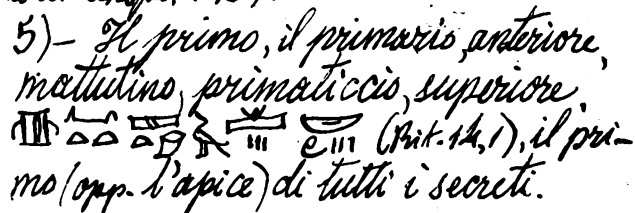 5)– Il primo, il primario, anteriore,
mattutino, primaticcio, superiore,
(Rit. 14, 1), il pri-
mo (opp. l'apice) di tutti i secreti.